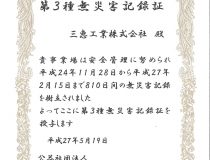 第3種無災害記録証
三恵工業株式会社 殿
貴事業場は安全管理に努められ
平成24年11月28日から平成27年
2月15日まで810日間の無災害記録
を樹立されました
よってここに第3種無災害記録証を
授与します
平成27年5月19日
公益社団法人